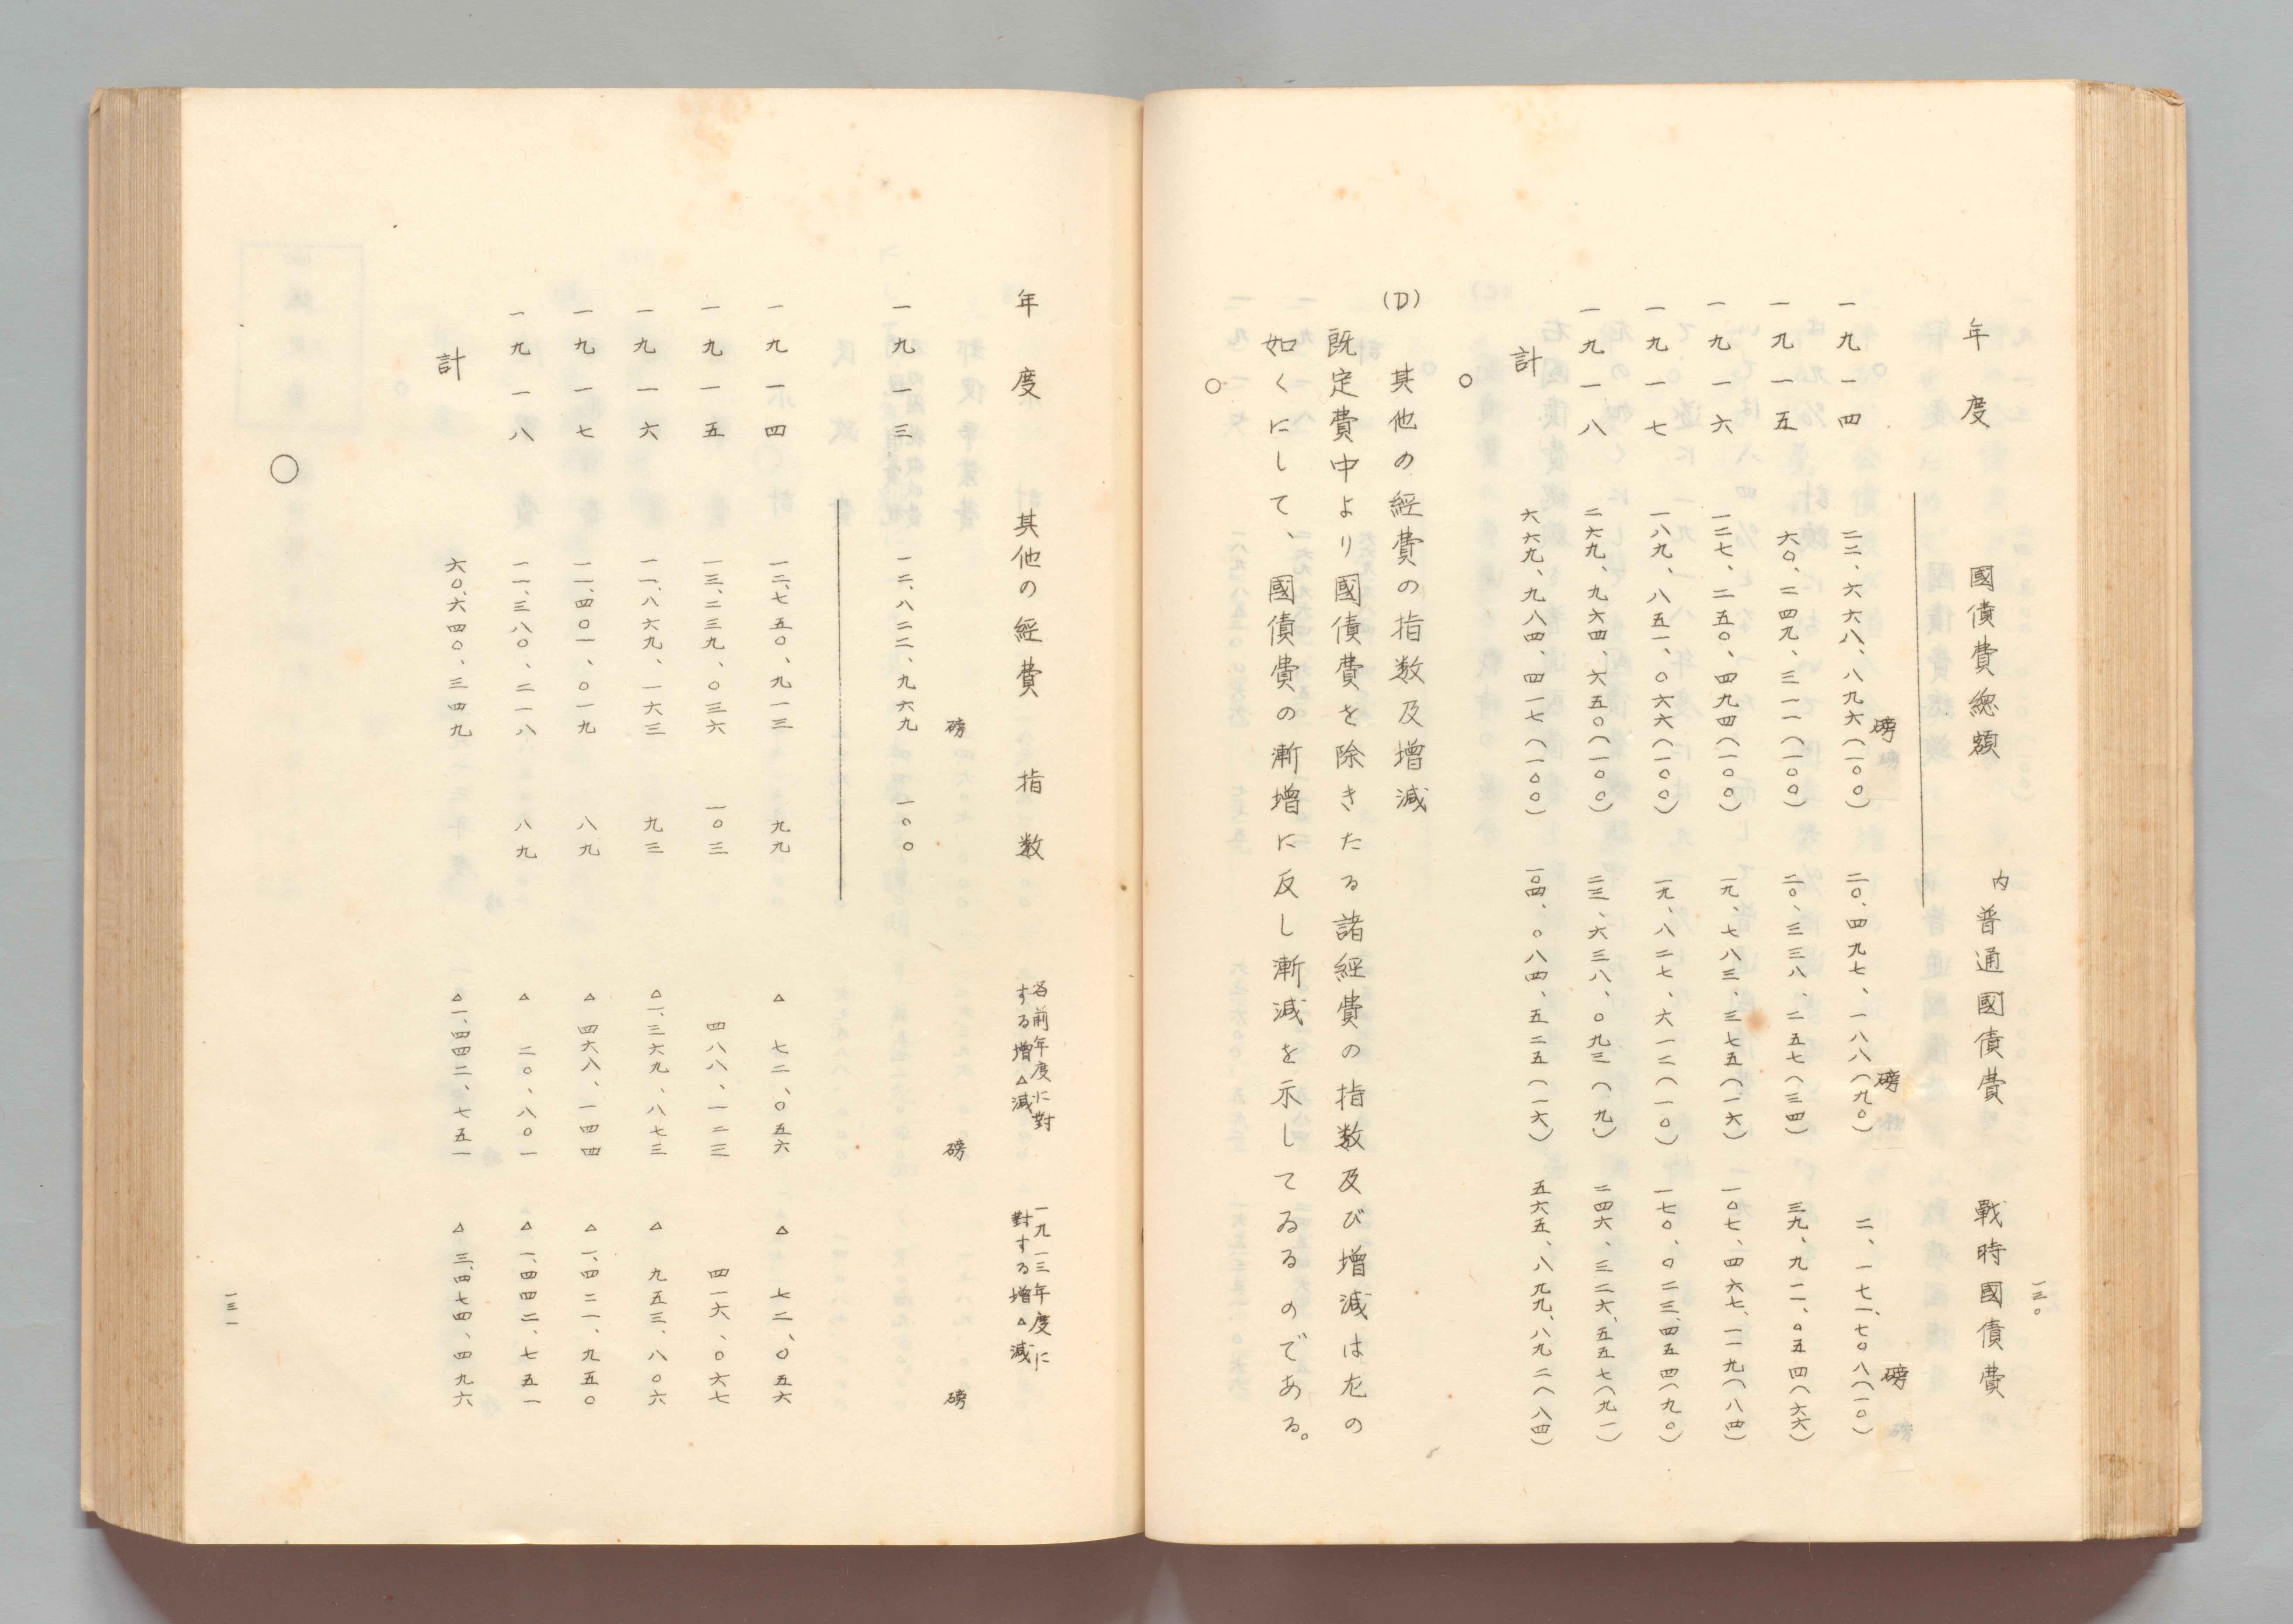 一三〇
年度 國債費總額 内普通國債費 戰時國債費
磅 磅 磅
一九一四 二二、六六八、八九六(一〇〇) 二〇、四九七、一八八(九〇) 二、一七一、七〇八(一〇)
一九一五 六〇、二四九、三一一(一〇〇) 二〇、三三八、二五七(三四) 三九、九一一、〇五四(六六)
一九一六 一二七、二五〇、四九四(一〇〇) 一九、七八三、三七五(一六) 一〇七、四六七、一一九(八四)
一九一七 一八九、八五一、〇六六(一〇〇) 一九、八二七、六一二(一〇) 一七〇、〇二三、四五四(九〇)
一九一八 二六九、九六四、六五〇(一〇〇) 二三、六三八、〇九三(九) 二四六、三二六、五五七(九一)
計 六六九、九八四、四一七(一〇〇) 一〇四、〇八四、五二五(一六) 五六五、八九九、八九二(八四)
○
(D) 其他の經費の指数及増減
既定費中より國債費を除きたる諸經費の指数及び増減は左の
如くにして、國債費の漸増に反し漸減を示してゐるのである。
○
年度 其他の經費 指数 各前年度に對する増△減 一九一三年度に對する増△減
磅 磅 磅
一九一三 一二、八二二、九六九 一〇〇
一九一四 一二、七五〇、九一三 九九 △ 七二、〇五六 △ 七二、〇五六
一九一五 一三、二三九、〇三六 一〇三 四八八、一二三 四一六、〇六七
一九一六 一一、八六九、一六三 九三 △一、三六九、八七三 △ 九五三、八〇六
一九一七 一一、四〇一、〇一九 八九 △ 四六八、一四四 △一、四二一、九五〇
一九一八 一一、三八〇、二一八 八九 △ 二〇、八〇一 △一、四四二、七五一
計 六〇、六四〇、三四九 △一、四四二、七五一 △三、四七四、四九六
○
一三一